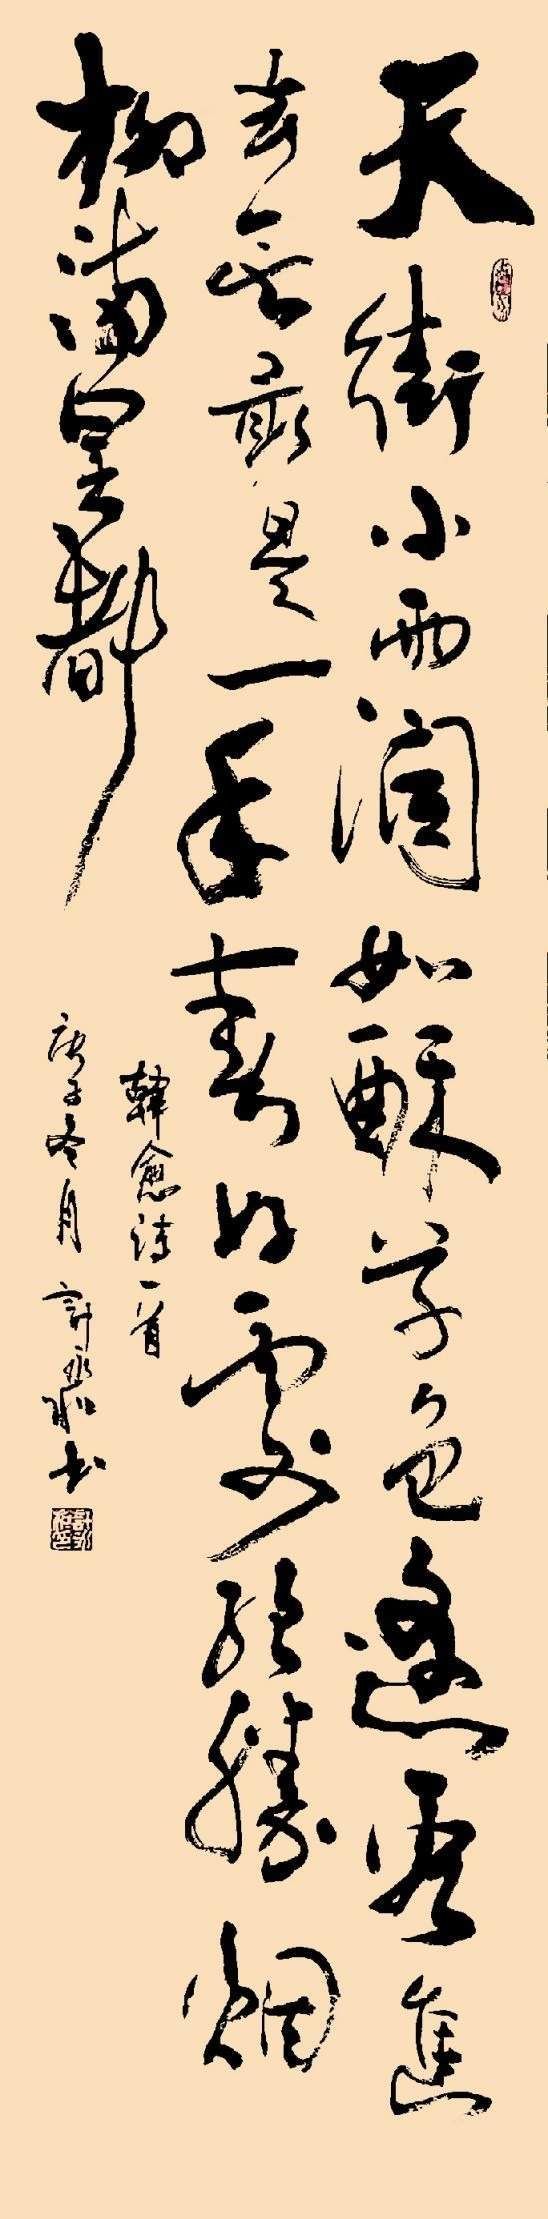 天街小雨潤如酥草色遙看進
却无最是一年春好處絕勝烟
柳滿皇都
韓愈詩一首
庚子冬月 書